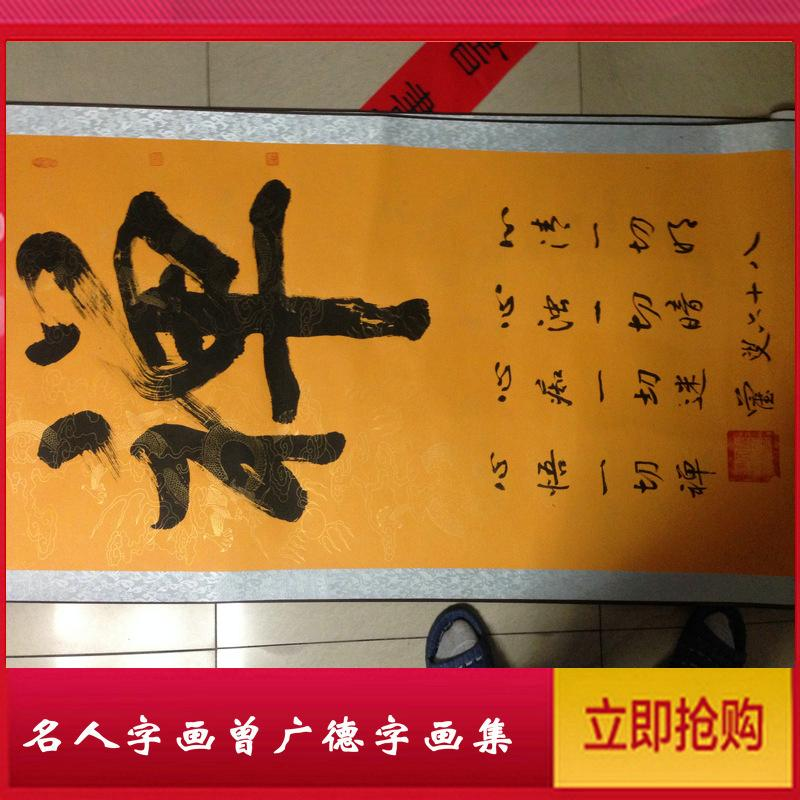 禅
心清一切明
心浊一切暗
心痴一切迷
心悟一切禪
叟六十八
名人字画曾广德字画集
立即抢购